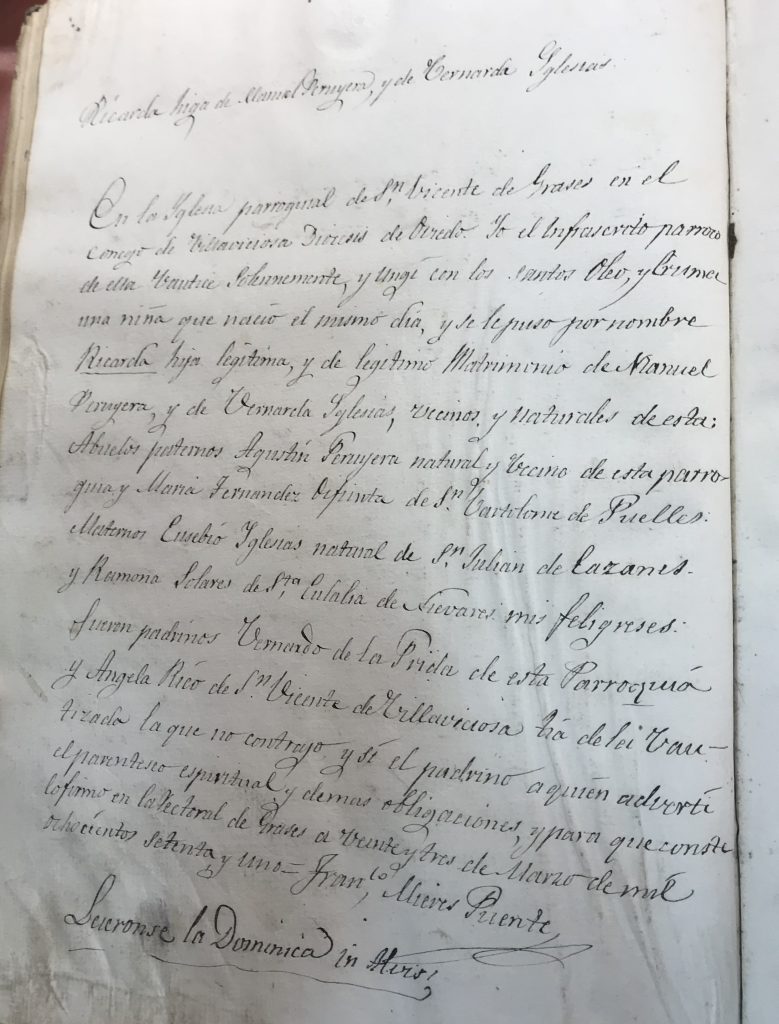 Ricarda higa de Manuel Peruyera, y de Vernarda Yglesias.
En la Yglesia parroquial de Sn. Vicente de Grases en el
concejo de Villaviciosa Diocesis de Oviedo. Yo el Infrascrito parroco
de ella Vautice Solennemente, y ungí con los Santos Oleo, y Crisma
una niña que nació el mismo dia, y se le puso por nombre
Ricarda hija legitima, y de legitimo Matrimonio de Manuel
Peruyera, y de Vernarda Yglesias, vecinos, y naturales de esta:
Abuelos paternos Agustín Peruyera natural y Vecino de esta parro-
quia y Maria Fernandez Difunta de Sn. Vartolome de Puelles:
Maternos Eusebió Yglesias natural de Sn. Julian de Cazanes.
y Ramona Solares de Sta. Eulalia de Nievares mis feligreses:
fueron padrinos Vernardo de la Prida de esta Parroquiá
y Angela Ricó de Sn. Vicente de Villaviciosa tia de la Vau-
tizada la que no contrajo y sí el padrino a quien advertí
el parenteseo espiritual y demas obligaciones, y para que conste
lo firmo en la Rectoral de Grases a veinte y tres de Marzo de mil
ochocientos setenta y uno = Franco. Mieres Puente
Leieronse la Dominica in Alvis